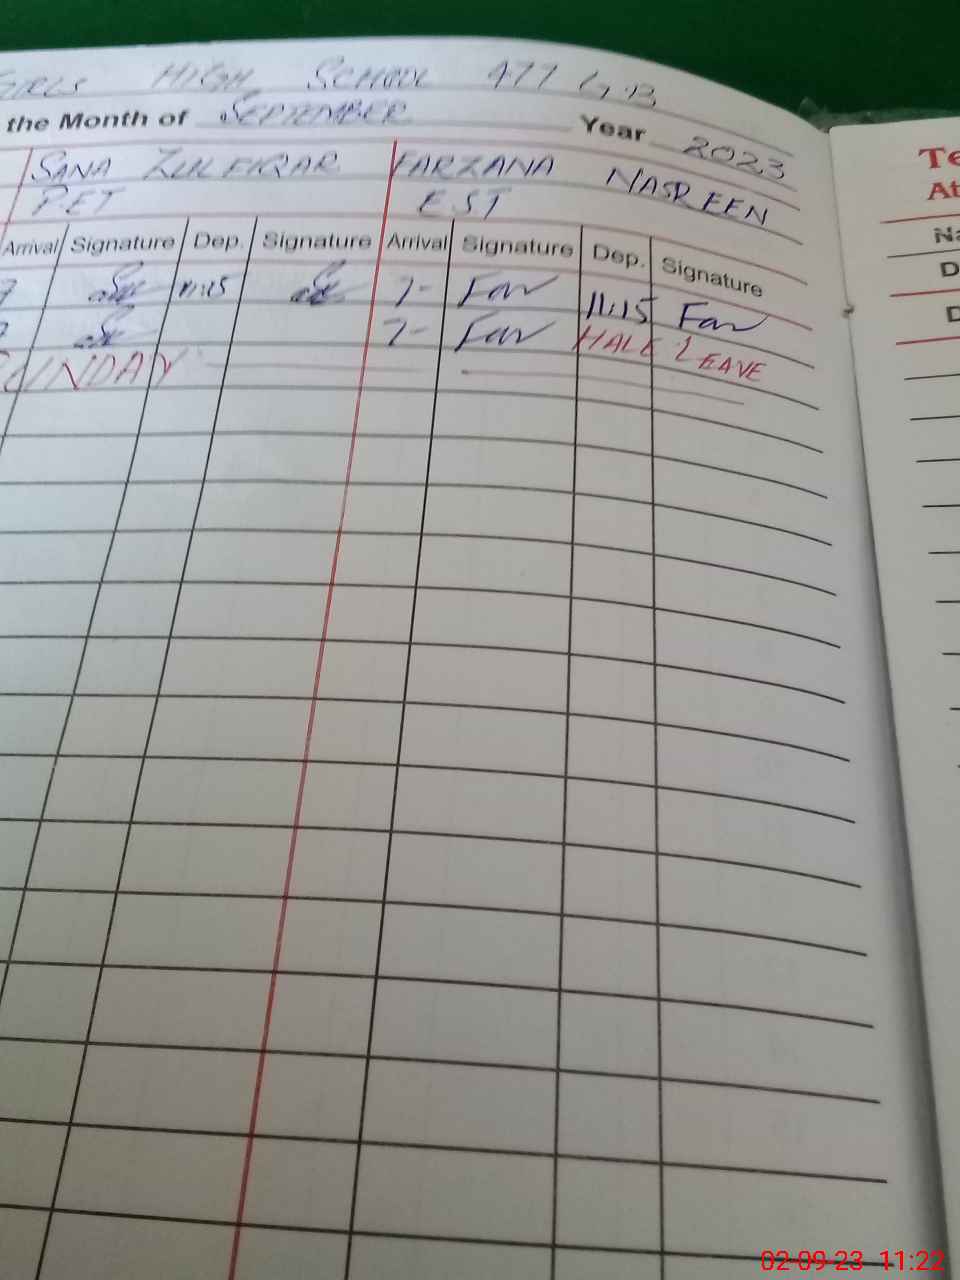 GIRLS HIGH SCHOOL 477 G.B
the Month of SEPTEMBER Year 2023
SANA ZULFIQAR FARZANA NASREEN
PET EST
Arrival Signature Dep. Signature Arrival Signature Dep. Signature
7 11:15 7- Far 11:15 Far
7 7- Far HALF LEAVE
SUNDAY
Te
At
Na
D
D
02-09-23 11:22